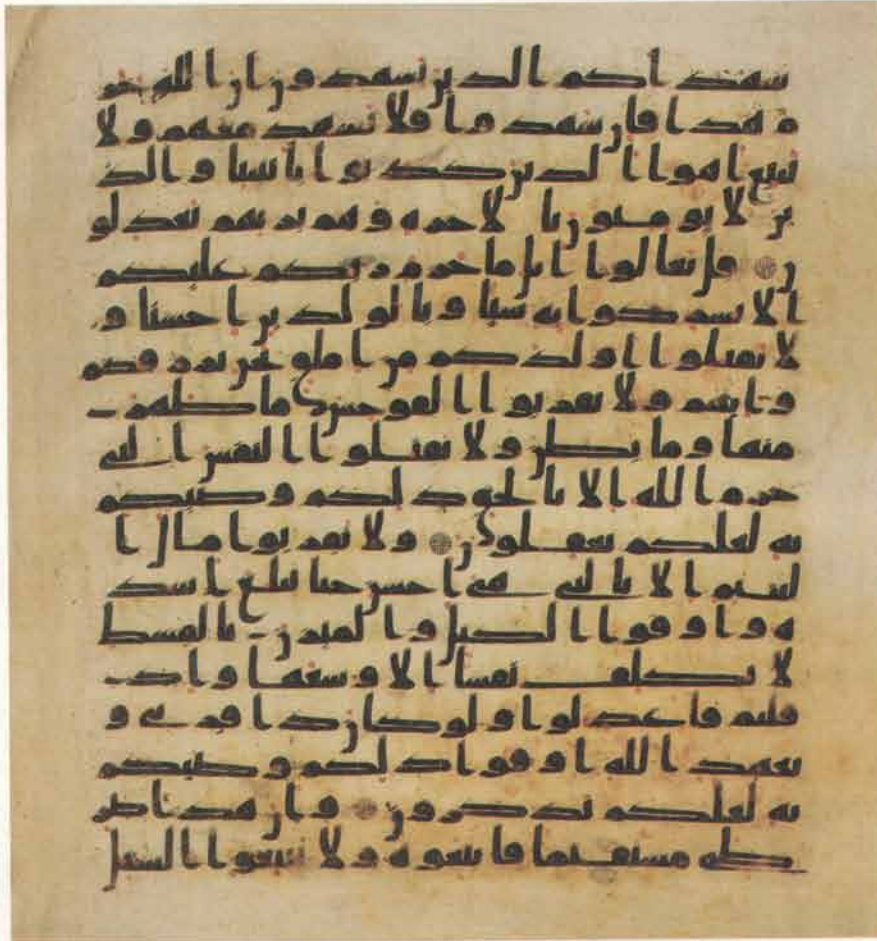 شهداكم الذين يشهدون ان الله حر
م هذا فان شهدوا فلا تشهد معهم ولا
تتبع اهوا الذين كذبوا بايتنا والذ
ين لا يومنون بالاخره وهم بربهم يعدلو
ن قل تعالوا اتل ما حرم ربكم عليكم
الا تشركوا به شيا وبالولدين احسنا و
لا تقتلوا اولدكم من املق نحن نرزقكم
واياهم ولا تقربوا الفوحش ما ظهر
منها وما بطن ولا تقتلوا النفس التي
حرم الله الا بالحق ذلكم وصيكم
به لعلكم تعقلون ولا تقربوا مال ا
ليتيم الا بالتي هي احسن حتى يبلغ اشد
ه واوفوا الكيل والميزن بالقسط
لا نكلف نفسا الا وسعها واذا
قلتم فاعدلوا ولو كان ذا قربى و
بعهد الله اوفوا ذلكم وصيكم
به لعلكم تذكرون وان هذا صر
طي مستقيما فاتبعوه ولا تتبعوا السبل